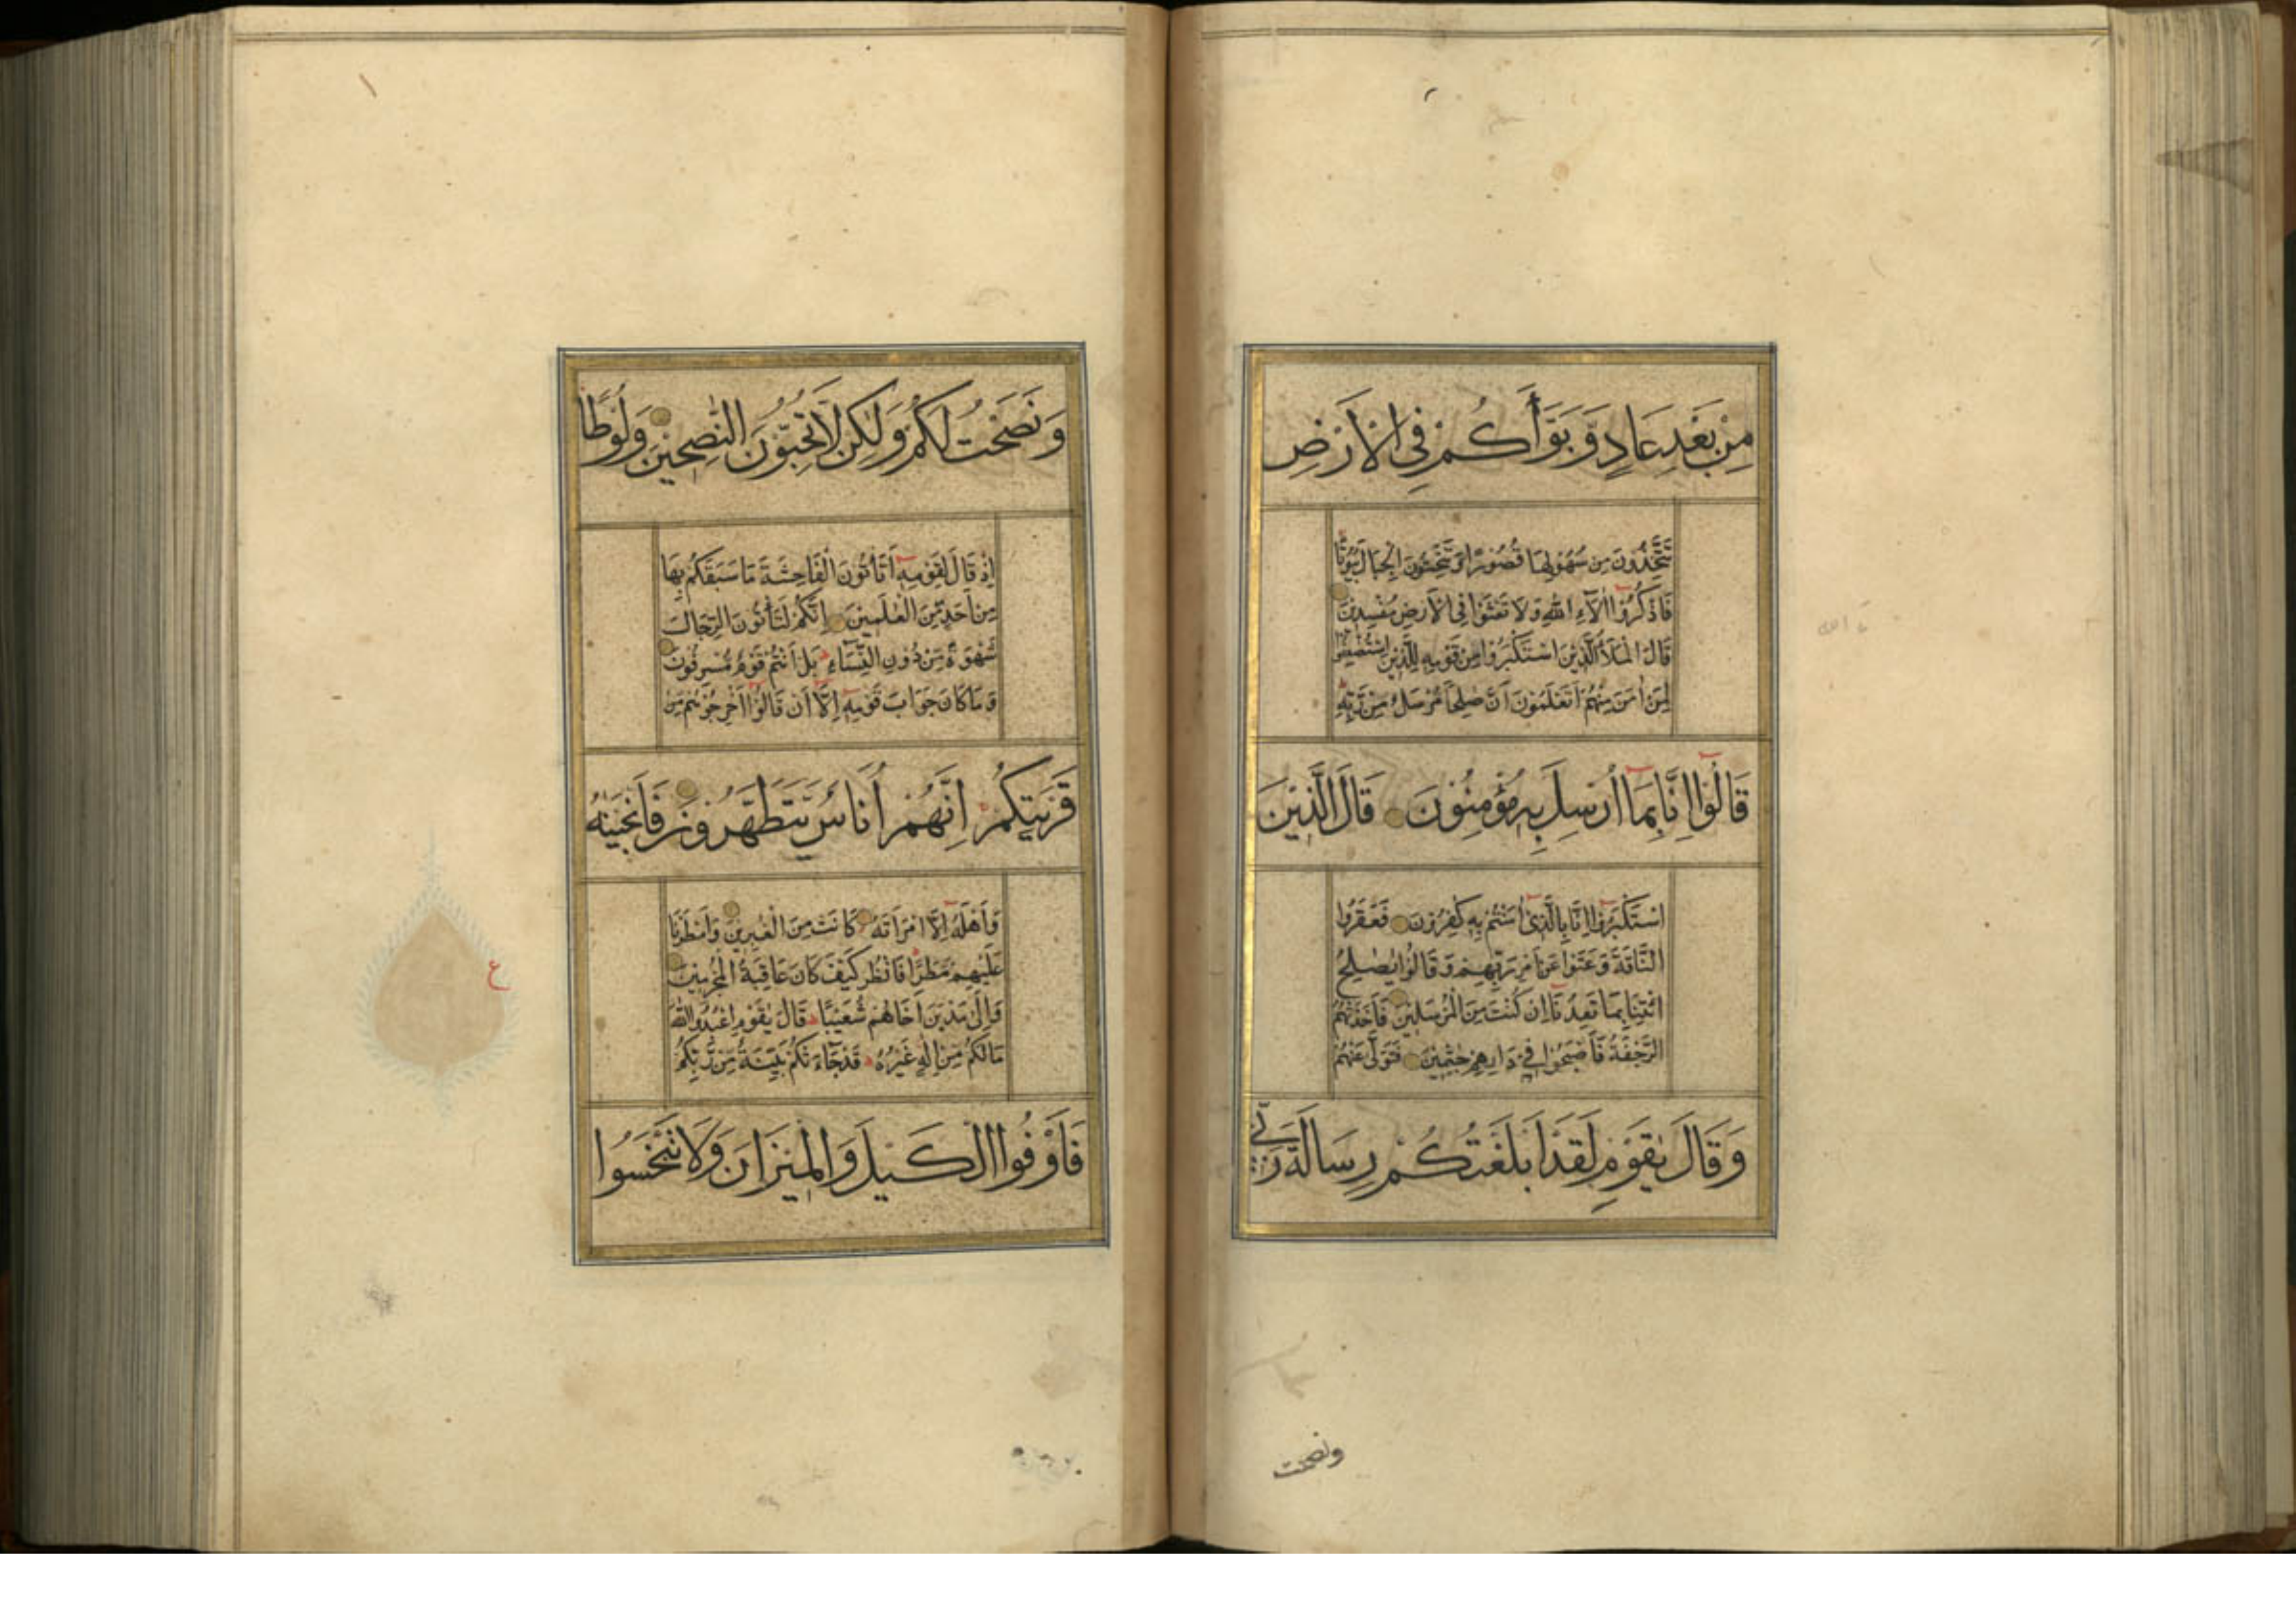 مِنْ بَعْدِ عَادٍ وَّبَوَّأَكُمْ فِي الْاَرْضِ
تَتَّخِذُوْنَ مِنْ سُهُوْلِهَا قُصُوْرًا وَّتَنْحِتُوْنَ الْجِبَالَ بُيُوْتًا
فَاذْكُرُوْا اٰلَاۤءَ اللّٰهِ وَلَا تَعْثَوْا فِى الْاَرْضِ مُفْسِدِيْنَ
قَالَ الْمَلَاُ الَّذِيْنَ اسْتَكْبَرُوْا مِنْ قَوْمِهٖ لِلَّذِيْنَ اسْتُضْعِفُوْا
لِمَنْ اٰمَنَ مِنْهُمْ اَتَعْلَمُوْنَ اَنَّ صٰلِحًا مُّرْسَلٌ مِّنْ رَّبِّهٖ
قَالُوْا اِنَّا بِمَا اُرْسِلَ بِهٖ مُؤْمِنُوْنَ قَالَ الَّذِيْنَ
اسْتَكْبَرُوْا اِنَّا بِالَّذِيْ اٰمَنْتُمْ بِهٖ كٰفِرُوْنَ فَعَقَرُوا
النَّاقَةَ وَعَتَوْا عَنْ اَمْرِ رَبِّهِمْ وَقَالُوْا يٰصٰلِحُ
ائْتِنَا بِمَا تَعِدُنَا اِنْ كُنْتَ مِنَ الْمُرْسَلِيْنَ فَاَخَذَتْهُمُ
الرَّجْفَةُ فَاَصْبَحُوْا فِيْ دَارِهِمْ جٰثِمِيْنَ فَتَوَلّٰى عَنْهُمْ
وَقَالَ يٰقَوْمِ لَقَدْ اَبْلَغْتُكُمْ رِسَالَةَ رَبِّيْ
ونصحت
وَنَصَحْتُ لَكُمْ وَلٰكِنْ لَّا تُحِبُّوْنَ النّٰصِحِيْنَ وَلُوْطًا
اِذْ قَالَ لِقَوْمِهٖ اَتَأْتُوْنَ الْفَاحِشَةَ مَا سَبَقَكُمْ بِهَا
مِنْ اَحَدٍ مِّنَ الْعٰلَمِيْنَ اِنَّكُمْ لَتَأْتُوْنَ الرِّجَالَ
شَهْوَةً مِّنْ دُوْنِ النِّسَاۤءِ بَلْ اَنْتُمْ قَوْمٌ مُّسْرِفُوْنَ
وَمَا كَانَ جَوَابَ قَوْمِهٖ اِلَّا اَنْ قَالُوْا اَخْرِجُوْهُمْ مِّنْ
قَرْيَتِكُمْ اِنَّهُمْ اُنَاسٌ يَّتَطَهَّرُوْنَ فَاَنْجَيْنٰهُ
وَاَهْلَهٗ اِلَّا امْرَاَتَهٗ كَانَتْ مِنَ الْغٰبِرِيْنَ وَاَمْطَرْنَا
عَلَيْهِمْ مَّطَرًا فَانْظُرْ كَيْفَ كَانَ عَاقِبَةُ الْمُجْرِمِيْنَ
وَاِلٰى مَدْيَنَ اَخَاهُمْ شُعَيْبًا قَالَ يٰقَوْمِ اعْبُدُوا اللّٰهَ
مَا لَكُمْ مِّنْ اِلٰهٍ غَيْرُهٗ قَدْ جَاۤءَتْكُمْ بَيِّنَةٌ مِّنْ رَّبِّكُمْ
فَاَوْفُوا الْكَيْلَ وَالْمِيْزَانَ وَلَا تَبْخَسُوا
ع